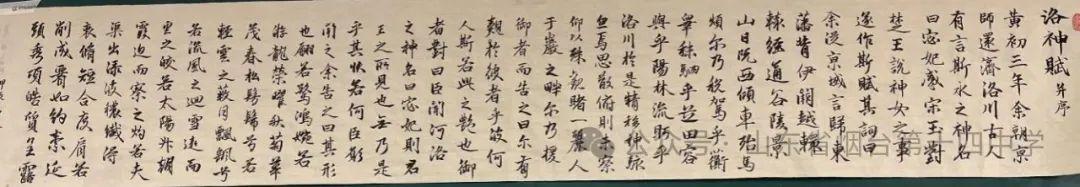 洛神賦 并序
黃初三年余朝京
師還濟洛川古人
有言斯水之神名
曰宓妃感宋玉對
楚王說神女之事
遂作斯賦其詞曰
余從京域言歸東
藩背伊闕越轘
轅經通谷陵景
山日既西傾車殆馬
煩尔乃稅駕乎蘅
皋秣駟乎芝田容
與乎陽林流眄乎
洛川於是精移神駭
忽焉思散俯則未察
仰以殊觀睹一麗人
于巖之畔尔乃援
御者而告之曰尔有
覿於彼者乎彼何
人斯若此之艷也御
者對曰臣聞河洛
之神名曰宓妃則君
王之所見也無乃是
乎其狀若何臣願
聞之余告之曰其形
也翩若驚鴻婉若
游龍榮曜秋菊華
茂春松髣髴兮若
輕雲之蔽月飄飖兮
若流風之迴雪遠而
望之皎若太陽升朝
霞迫而察之灼若芙
渠出淥波穠纖得
衷脩短合度肩若
削成腰如約素延
頸秀項皓質呈露
公众号 · 山东省烟台第十四中学